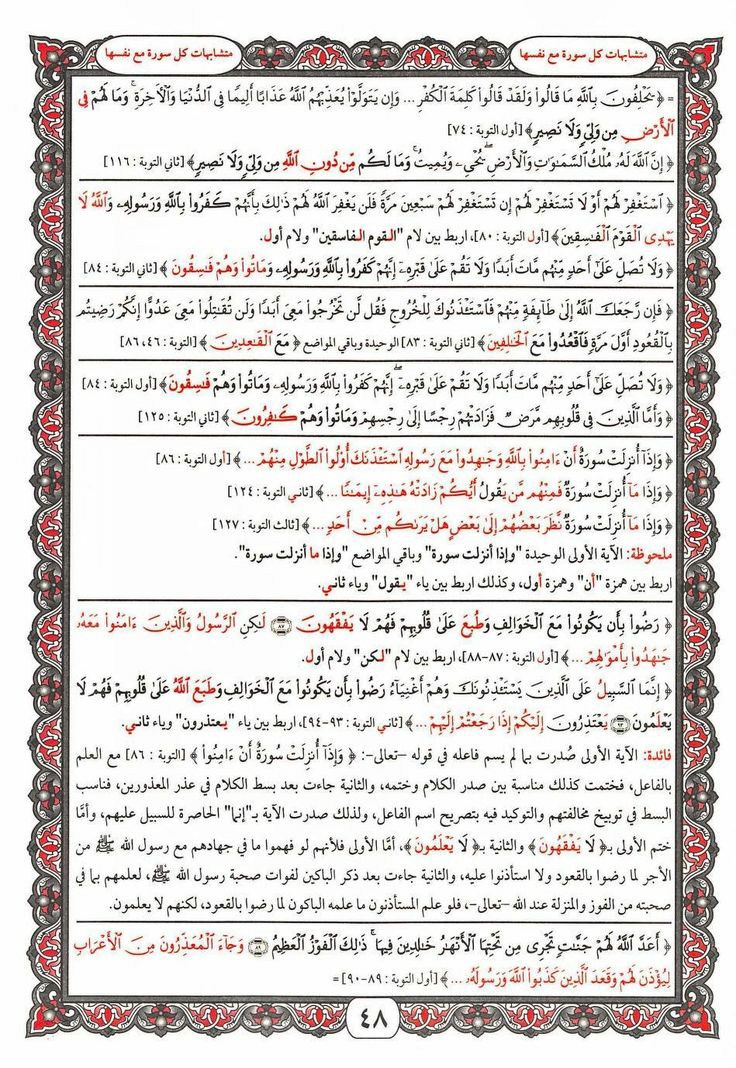 متشابهات كل سورة مع نفسها
متشابهات كل سورة مع نفسها
= ﴿ يَحْلِفُونَ بِاللَّهِ مَا قَالُوا وَلَقَدْ قَالُوا كَلِمَةَ الْكُفْرِ ... وَإِن يَتَوَلَّوْا يُعَذِّبْهُمُ اللَّهُ عَذَابًا أَلِيمًا فِي الدُّنْيَا وَالْآخِرَةِ ۚ وَمَا لَهُمْ فِي
الْأَرْضِ مِن وَلِيٍّ وَلَا نَصِيرٍ﴾ [أول التوبة : ٧٤]
﴿ إِنَّ اللَّهَ لَهُ مُلْكُ السَّمَٰوَٰتِ وَالْأَرْضِ ۖ يُحْيِي وَيُمِيتُ ۚ وَمَا لَكُم مِّن دُونِ اللَّهِ مِن وَلِيٍّ وَلَا نَصِيرٍ﴾ [ثاني التوبة : ١١٦]
﴿ اسْتَغْفِرْ لَهُمْ أَوْ لَا تَسْتَغْفِرْ لَهُمْ إِن تَسْتَغْفِرْ لَهُمْ سَبْعِينَ مَرَّةً فَلَن يَغْفِرَ اللَّهُ لَهُمْ ذَٰلِكَ بِأَنَّهُمْ كَفَرُوا بِاللَّهِ وَرَسُولِهِ وَاللَّهُ لَا
يَهْدِي الْقَوْمَ الْفَاسِقِينَ﴾ [أول التوبة : ٨٠]، اربط بين لام "القوم الفاسقين" ولام أول.
﴿ وَلَا تُصَلِّ عَلَىٰ أَحَدٍ مِنْهُم مَّاتَ أَبَدًا وَلَا تَقُمْ عَلَىٰ قَبْرِهِ إِنَّهُمْ كَفَرُوا بِاللَّهِ وَرَسُولِهِ وَمَاتُوا وَهُمْ فَاسِقُونَ ﴾ [ثاني التوبة : ٨٤]
﴿ فَإِن رَّجَعَكَ اللَّهُ إِلَىٰ طَائِفَةٍ مِنْهُمْ فَاسْتَأْذَنُوكَ لِلْخُرُوجِ فَقُل لَّن تَخْرُجُوا مَعِيَ أَبَدًا وَلَن تُقَٰتِلُوا مَعِيَ عَدُوًّا إِنَّكُمْ رَضِيتُم
بِالْقُعُودِ أَوَّلَ مَرَّةٍ فَاقْعُدُوا مَعَ الْخَٰلِفِينَ﴾ [ثاني التوبة : ٨٣] الوحيدة وباقي المواضع ﴿ مَعَ الْقَٰعِدِينَ ﴾ [التوبة : ٤٦، ٨٦]
﴿ وَلَا تُصَلِّ عَلَىٰ أَحَدٍ مِنْهُم مَّاتَ أَبَدًا وَلَا تَقُمْ عَلَىٰ قَبْرِهِ ۖ إِنَّهُمْ كَفَرُوا بِاللَّهِ وَرَسُولِهِ وَمَاتُوا وَهُمْ فَسِقُونَ ﴾ [أول التوبة : ٨٤]
﴿ وَأَمَّا الَّذِينَ فِي قُلُوبِهِم مَّرَضٌ فَزَادَتْهُمْ رِجْسًا إِلَىٰ رِجْسِهِمْ وَمَاتُوا وَهُمْ كَٰفِرُونَ ﴾ [ثاني التوبة : ١٢٥]
﴿ وَإِذَا أُنزِلَتْ سُورَةٌ أَنْ ءَامِنُوا بِاللَّهِ وَجَٰهِدُوا مَعَ رَسُولِهِ اسْتَأْذَنَكَ أُوْلُوا الطَّوْلِ مِنْهُمْ ... ﴾ [أول التوبة : ٨٦]
﴿ وَإِذَا مَا أُنزِلَتْ سُورَةٌ فَمِنْهُم مَّن يَقُولُ أَيُّكُمْ زَادَتْهُ هَٰذِهِ إِيمَٰنًا ... ﴾ [ثاني التوبة : ١٢٤]
﴿ وَإِذَا مَا أُنزِلَتْ سُورَةٌ نَّظَرَ بَعْضُهُمْ إِلَىٰ بَعْضٍ هَلْ يَرَىٰكُم مِّنْ أَحَدٍ ... ﴾ [ثالث التوبة : ١٢٧]
ملحوظة: الآية الأولى الوحيدة "وإذا أنزلت سورة" وباقي المواضع "وإذا ما أنزلت سورة".
اربط بين همزة "أن" وهمزة أول، وكذلك اربط بين ياء "يقول" وياء ثاني.
﴿ رَضُوا بِأَن يَكُونُوا مَعَ الْخَوَالِفِ وَطُبِعَ عَلَىٰ قُلُوبِهِمْ فَهُمْ لَا يَفْقَهُونَ ٨٧ لَٰكِنِ الرَّسُولُ وَالَّذِينَ ءَامَنُوا مَعَهُ
جَٰهَدُوا بِأَمْوَٰلِهِمْ ... ﴾ [أول التوبة : ٨٧-٨٨]، اربط بين لام "لكن" ولام أول.
﴿ إِنَّمَا السَّبِيلُ عَلَى الَّذِينَ يَسْتَأْذِنُونَكَ وَهُمْ أَغْنِيَاءُ رَضُوا بِأَن يَكُونُوا مَعَ الْخَوَالِفِ وَطَبَعَ اللَّهُ عَلَىٰ قُلُوبِهِمْ فَهُمْ لَا
يَعْلَمُونَ ٩٣ يَعْتَذِرُونَ إِلَيْكُمْ إِذَا رَجَعْتُمْ إِلَيْهِمْ ... ﴾ [ثاني التوبة : ٩٣-٩٤]، اربط بين ياء "يعتذرون" وياء ثاني.
فائدة: الآية الأولى صُدرت بما لم يسم فاعله في قوله –تعالى–: ﴿ وَإِذَا أُنزِلَتْ سُورَةٌ أَنْ ءَامِنُوا ﴾ [التوبة : ٨٦] مع العلم
بالفاعل، فختمت كذلك مناسبة بين صدر الكلام وختمه، والثانية جاءت بعد بسط الكلام في عذر المعذورين، فناسب
البسط في توبيخ مخالفتهم والتوكيد فيه بتصريح اسم الفاعل، ولذلك صدرت الآية بـ"إنما" الحاصرة للسبيل عليهم، وأمَّا
ختم الأولى بـ﴿ لَا يَفْقَهُونَ ﴾ والثانية بـ﴿ لَا يَعْلَمُونَ﴾، أمَّا الأولى فلأنهم لو فهموا ما في جهادهم مع رسول الله ﷺ من
الأجر لما رضوا بالقعود ولا استأذنوا عليه، والثانية جاءت بعد ذكر الباكين لفوات صحبة رسول الله ﷺ، لعلمهم بما في
صحبته من الفوز والمنزلة عند الله –تعالى–، فلو علم المستأذنون ما علمه الباكون لما رضوا بالقعود، لكنهم لا يعلمون.
﴿ أَعَدَّ اللَّهُ لَهُمْ جَنَّٰتٍ تَجْرِي مِن تَحْتِهَا الْأَنْهَٰرُ خَٰلِدِينَ فِيهَا ۚ ذَٰلِكَ الْفَوْزُ الْعَظِيمُ ٨٩ وَجَاءَ الْمُعَذِّرُونَ مِنَ الْأَعْرَابِ
لِيُؤْذَنَ لَهُمْ وَقَعَدَ الَّذِينَ كَذَبُوا اللَّهَ وَرَسُولَهُ ... ﴾ [أول التوبة : ٨٩-٩٠] =
٤٨